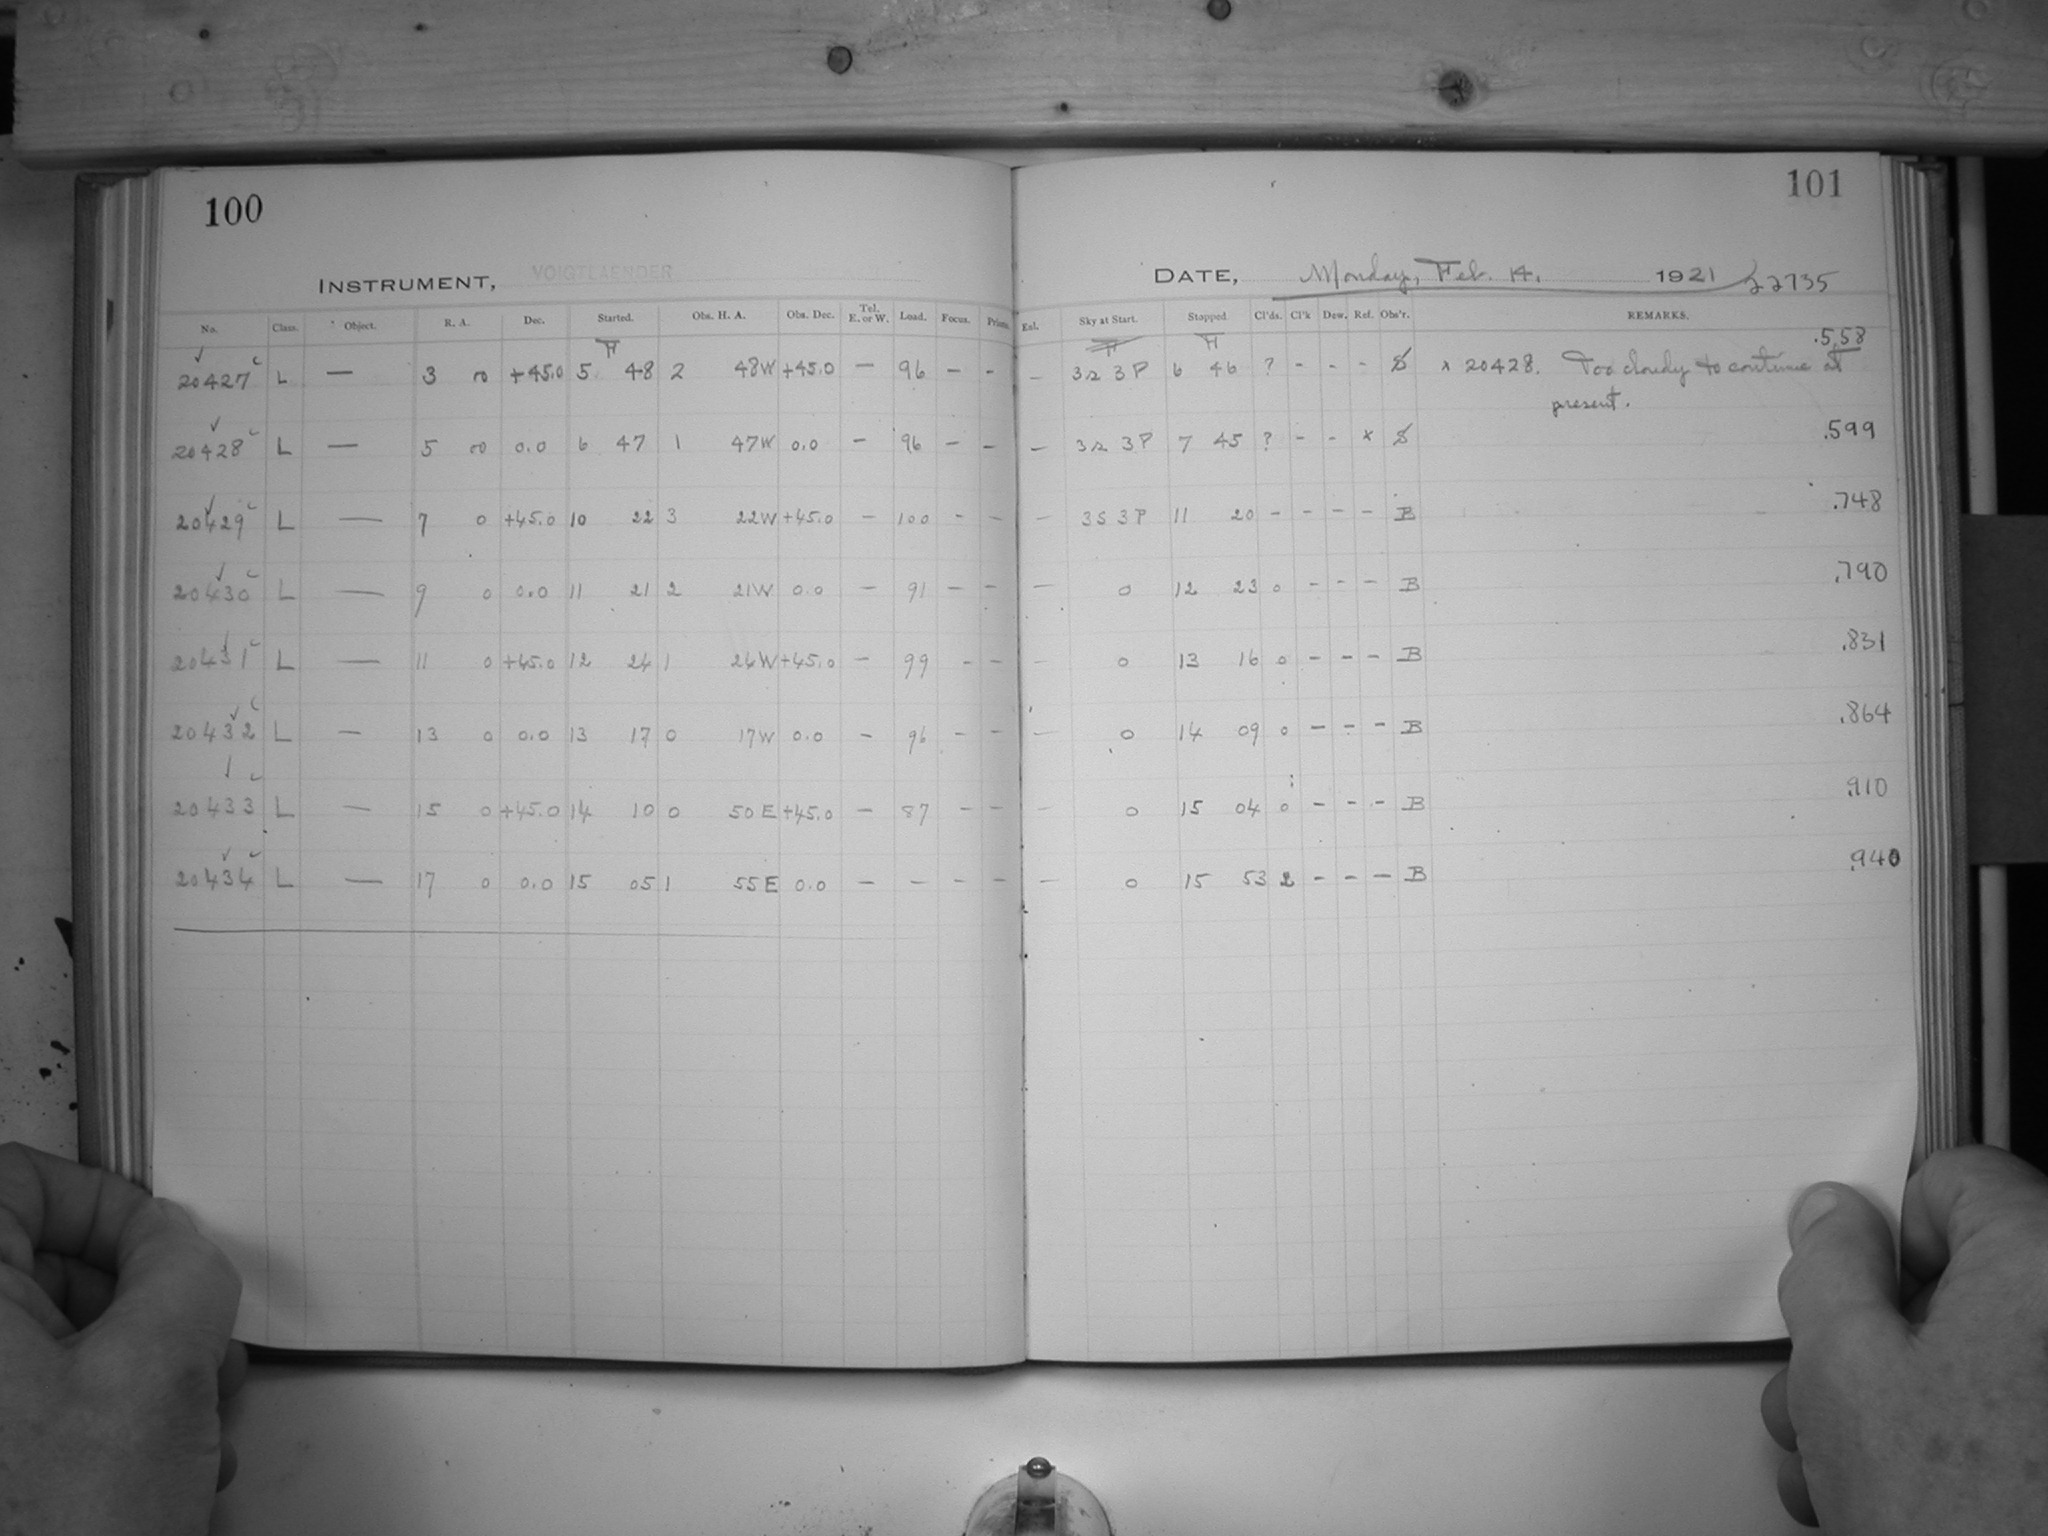 100
101
INSTRUMENT, VOIGTLAENDER
DATE, Monday, Feb. 14, 1921 22735
No. Class. Object. R. A. Dec. Started. Obs. H. A. Obs. Dec. Tel. E. or W. Load. Focus. Prisms. Enl. Sky at Start. Stopped Cl'ds. Cl'k Dew. Ref. Obs'r. REMARKS.
.558
20427 L — 3 0 +45.0 5 48 2 48W +45.0 — 96 - - - 3s 3P 6 46 ? - - - S x 20428. Too cloudy to continue at
present.
20428 L — 5 0 0.0 6 47 1 47W 0.0 — 96 - - - 3s 3P 7 45 ? - - x S .599
20429 L — 7 0 +45.0 10 22 3 22W +45.0 - 100 - - - 3S 3P 11 20 - - - - B .748
20430 L — 9 0 0.0 11 21 2 21W 0.0 - 91 - - - 0 12 23 0 - - - B .790
20431 L — 11 0 +45.0 12 24 1 24W +45.0 - 99 - - - 0 13 16 0 - - - B .831
20432 L — 13 0 0.0 13 17 0 17W 0.0 - 96 - - - 0 14 09 0 - - - B .864
20433 L — 15 0 +45.0 14 10 0 50E +45.0 - 87 - - - 0 15 04 0 - - - B .910
20434 L — 17 0 0.0 15 05 1 55E 0.0 - - - - - 0 15 53 2 - - - B .940